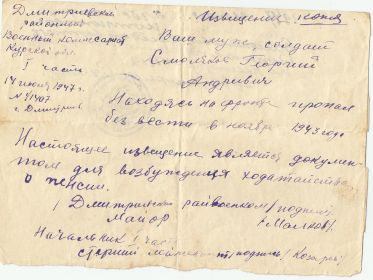 Дмитриевский
районный
Военный комиссариат
Курской обл.
I часть
14 июня 1947 г.
г. Дмитриев
Извещение копия
Ваш муж, солдат
Смоляков Георгий
Андреевич
Находясь на фронте пропал
без вести в ноябре 1943 года
Настоящее извещение является докумен-
том для возбуждения ходатайства
о пенсии.
Дмитриевский райвоенком /подпись/
Майор /Малков/
Начальник I части
старший лейтенант /подпись/